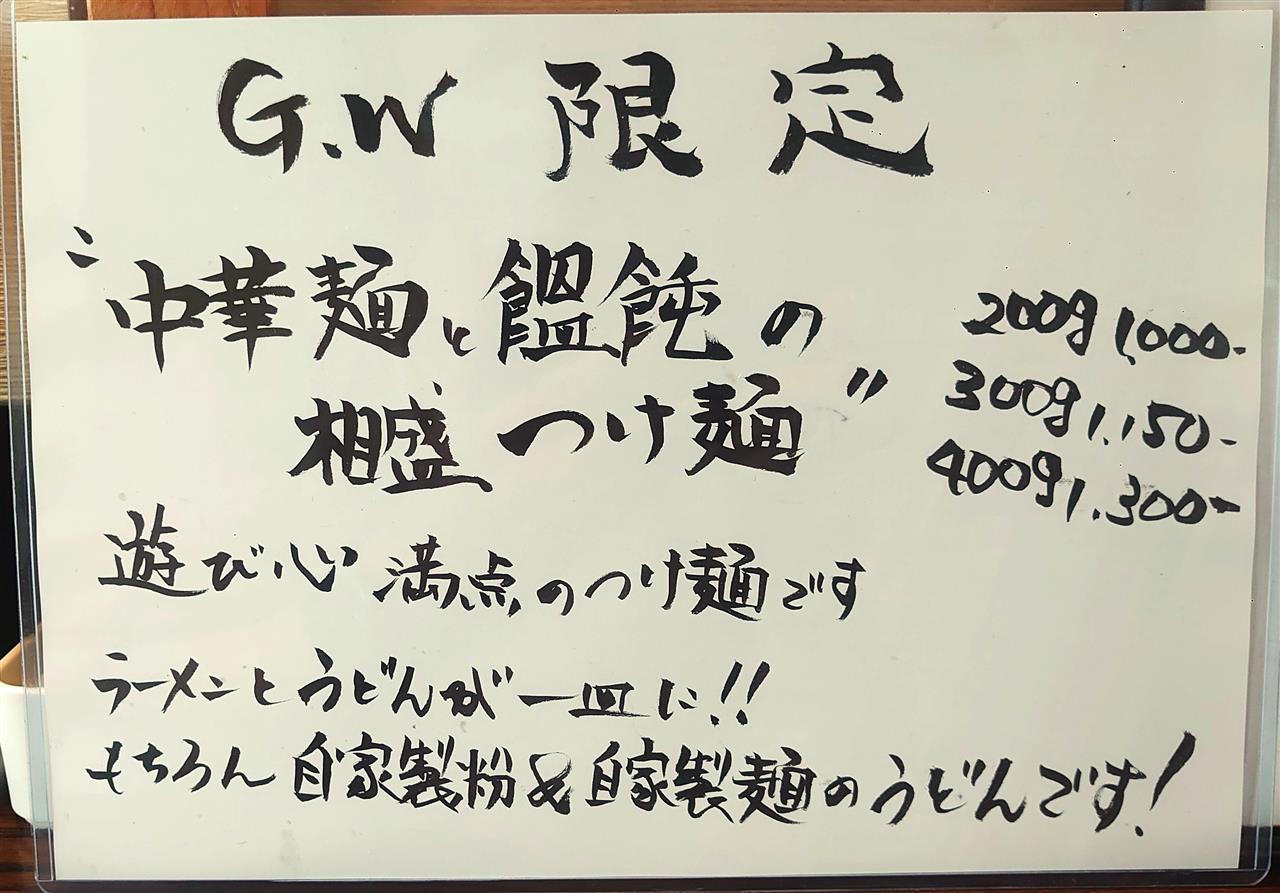 G.W 限定
"中華麺と饂飩の
相盛つけ麺"
200g 1,000-
300g 1,150-
400g 1,300-
遊び心満点のつけ麺です
ラーメンとうどんが一皿に!!
もちろん自家製粉&自家製麺のうどんです!